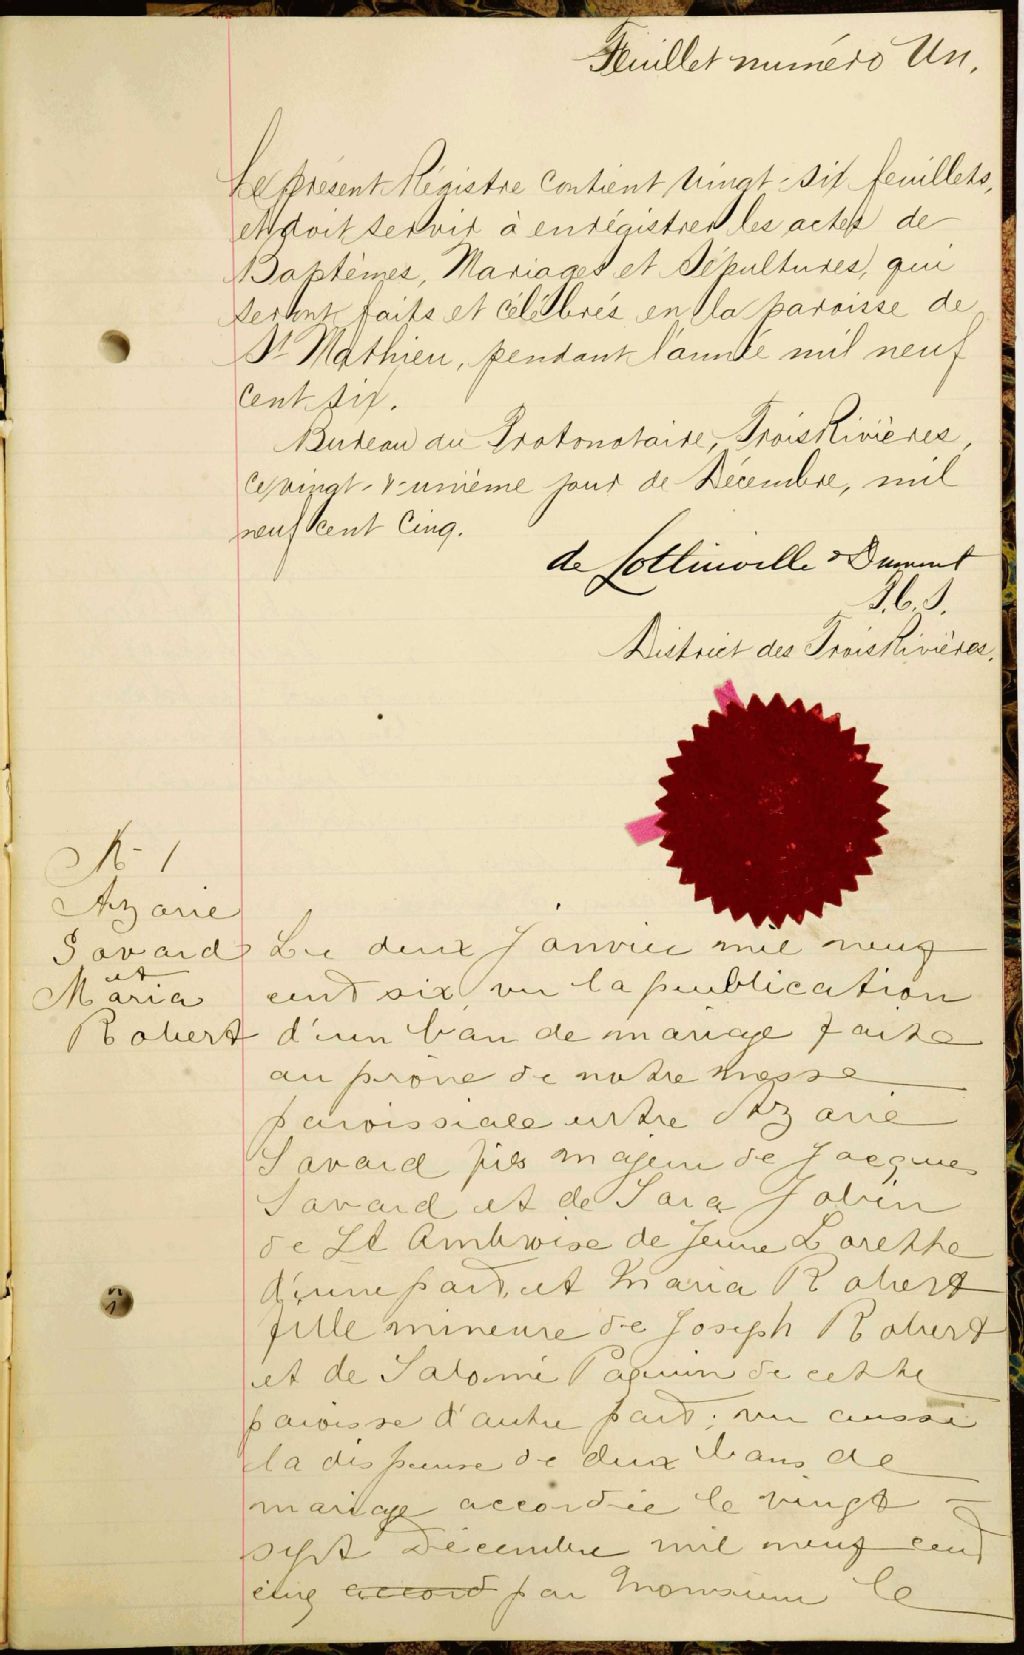 Feuillet numéro Un.
Le présent Régistre contient vingt-six feuillets,
et doit servir à enrégistrer les actes de
Baptêmes, Mariages et Sépultures, qui
seront faits et célébrés en la paroisse de
St Mathieu, pendant l'année mil neuf
cent six.
Bureau du Protonotaire, Trois Rivières,
ce vingt-&-unième jour de Décembre, mil
neuf cent cinq.
de Lottinville & Dumont
P.C.S.
District des Trois Rivières.
M-1
Azarie
Savard
et
Maria
Robert
Le deux Janvier mil neuf
cent six vu la publication
d'un ban de mariage faite
au prône de notre messe
paroissiale entre Azarie
Savard fils majeur de Jacques
Savard et de Sara Jobin
de St Ambroise de Jeune Lorette
d'une part, et Maria Robert
fille mineure de Joseph Robert
et de Salomé Paquin de cette
paroisse d'autre part; vu aussi
la dispense de deux bans de
mariage accordée le vingt
sept Décembre mil neuf cent
cinq accord par Monsieur le